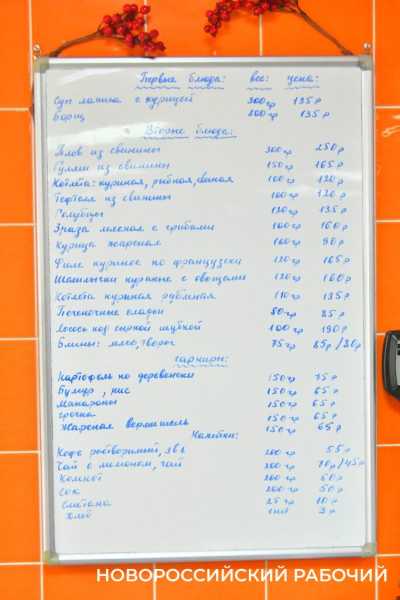 Первые блюда: вес: цена:
Суп лапша с курицей 300гр 135р
Борщ 300гр 135р
Вторые блюда:
Плов из свинины 300гр 250р
Гуляш из свинины 150гр 165р
Котлета: куриная, рыбная, свиная 100гр 120р
Тефтеля из свинины 100гр 120р
Голубцы 130гр 135р
Зраза мясная с грибами 100гр 160р
Курица жареная 100гр 90р
Филе куриное по французски 120гр 165р
Шашлычки куриные с овощами 120гр 160р
Котлета куриная рубленая 110гр 135р
Печеночные оладьи 50гр 85р
Лосось под сырной шубкой 100гр 190р
Блины: мясо, творог 75гр 85р/80р
гарниры:
Картофель по деревенски 150гр 75р
Булгур, рис 150гр 65р
Макароны 150гр 65р
гречка 150гр 65р
Жареная вермишель 150гр 65р
Напитки:
Кофе растворимый, 3в1 200гр 55р
Чай с лимоном, чай 200гр 70р/45р
Компот 200гр 60р
Сок 200гр 50р
Сметана 25гр 10р
Хлеб 3р
НОВОРОССИЙСКИЙ РАБОЧИЙ